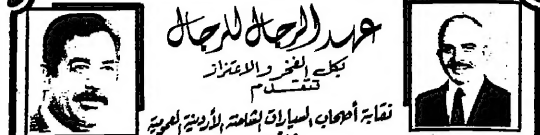 عهد الرجال للرجال
بكل الفخر والاعتزاز
تتقدم
نقابة أصحاب السيارات الشاحنة الأردنية العمومية